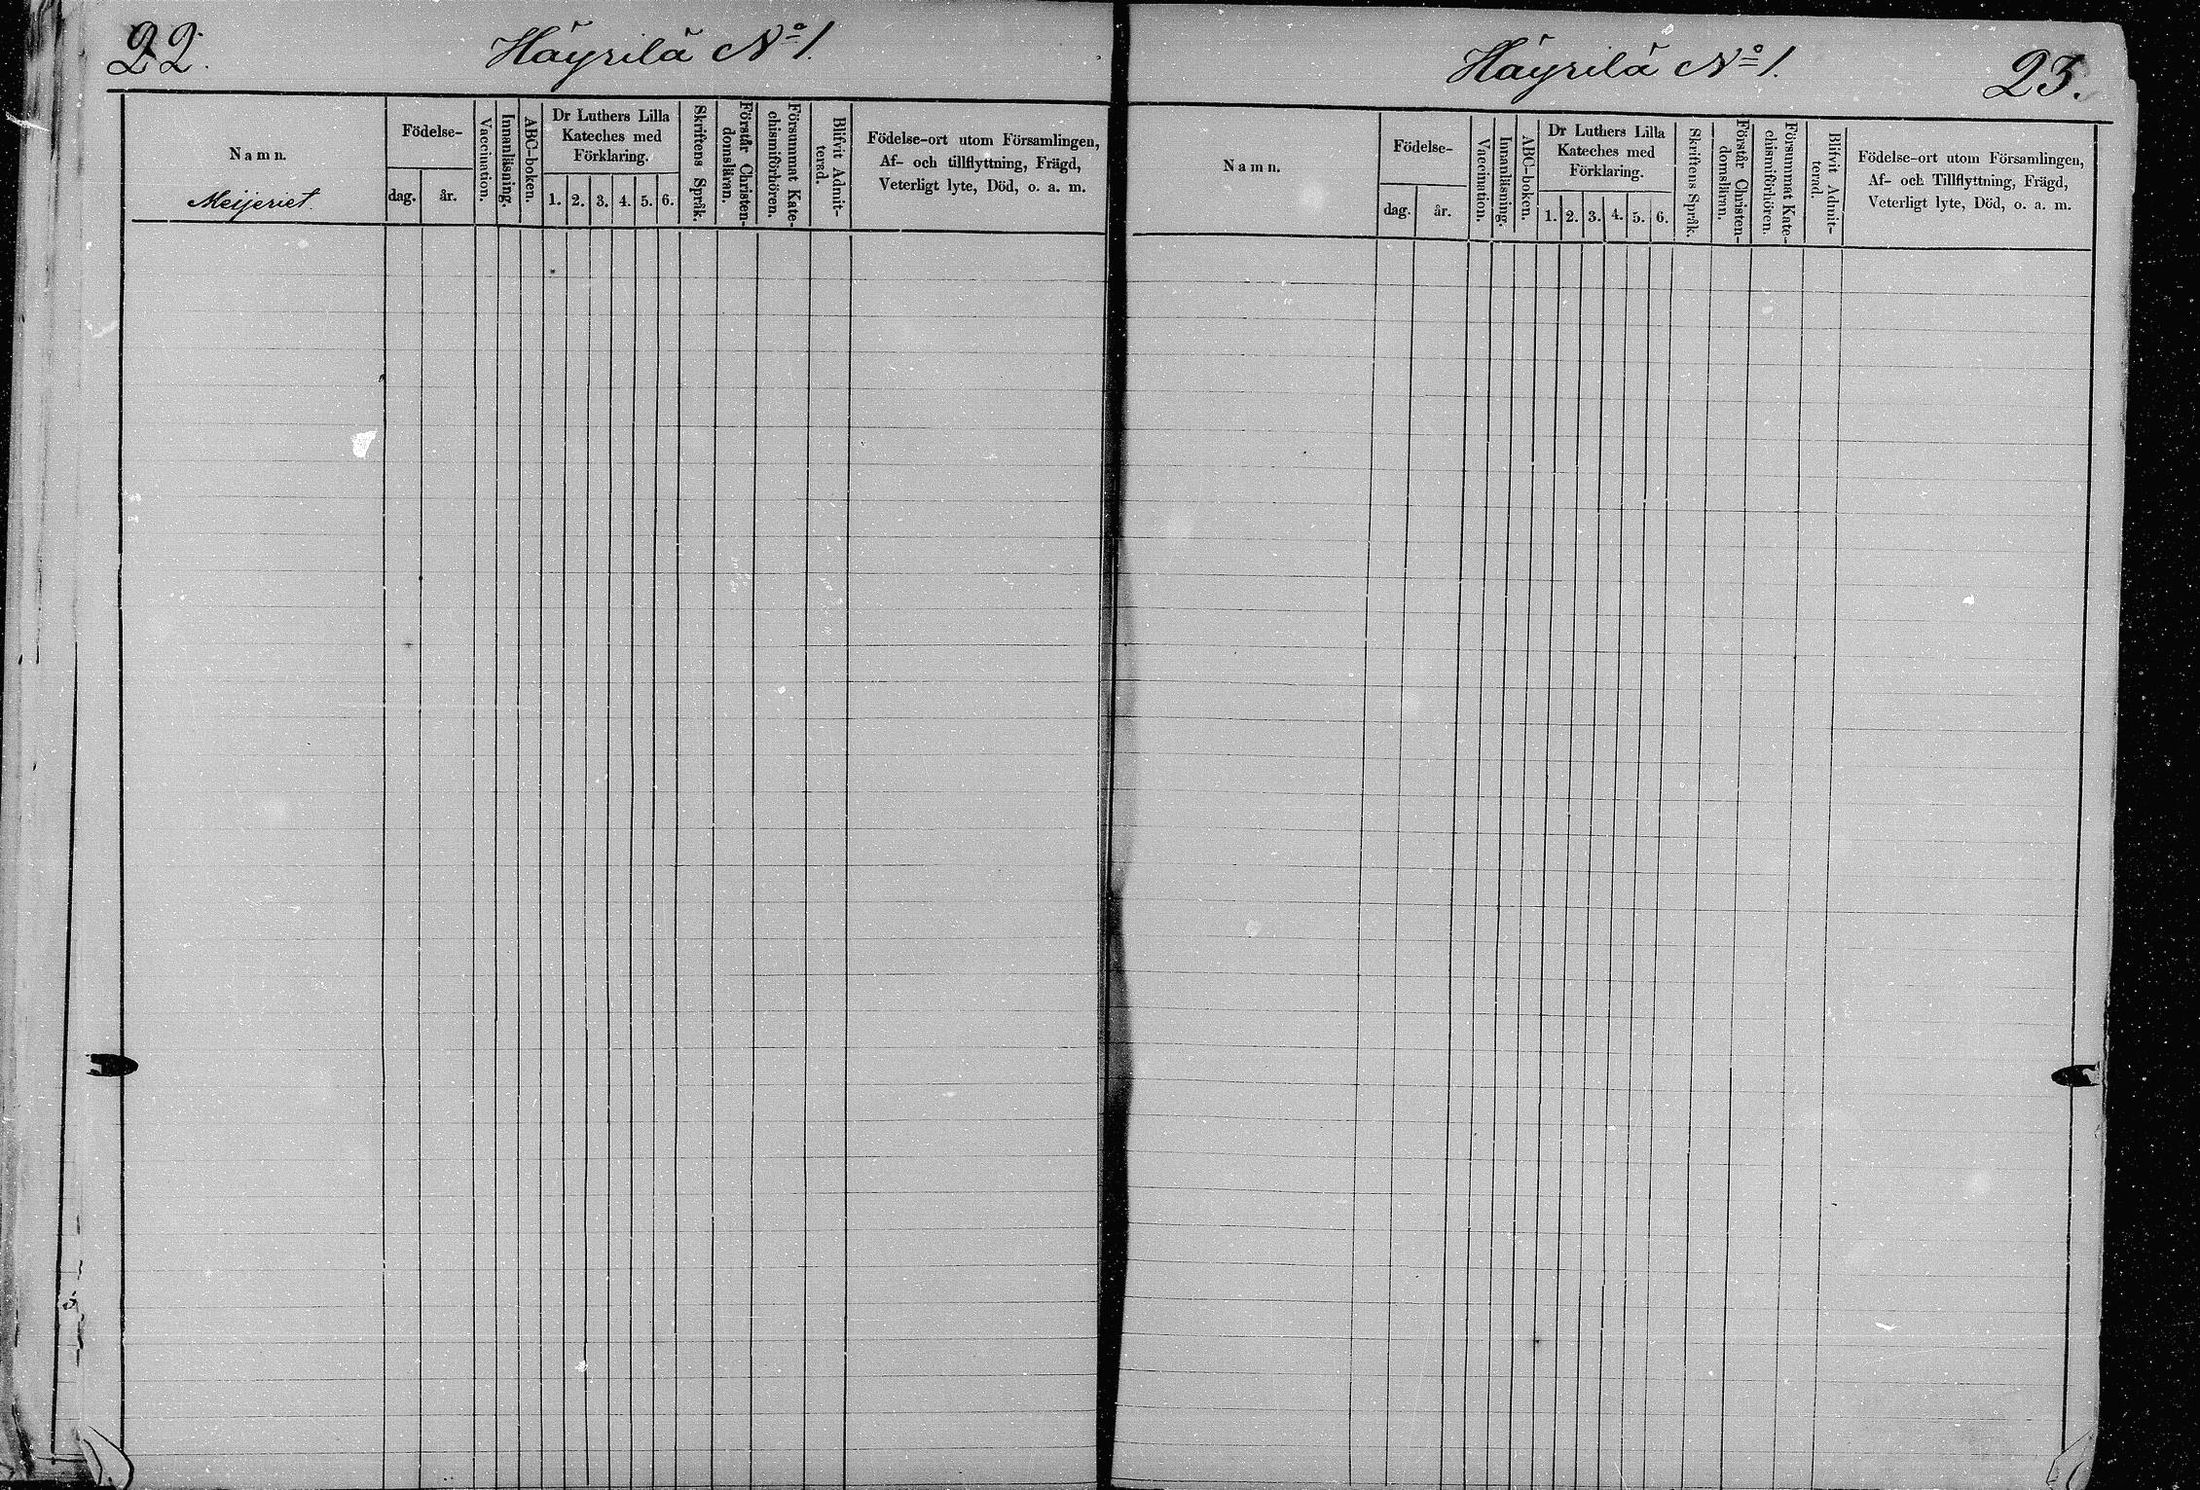 22.
Häyrilä No 1.
Namn.
Meijeriet.
Födelse-
dag.
år.
Vaccination.
Innanläsning.
ABC-boken.
Dr Luthers Lilla
Kateches med
Förklaring.
1. 2. 3. 4. 5. 6.
Skriftens Språk.
Förstår Christen-
domsläran.
Försummat Kate-
chismiförhören.
Blifvit Admit-
terad.
Födelse-ort utom Församlingen,
Af- och tillflyttning, Frägd,
Veterligt lyte, Död, o. a. m.
Häyrilä No 1.
23.
Namn.
Födelse-
dag.
år.
Vaccination.
Innanläsning.
ABC-boken.
Dr Luthers Lilla
Kateches med
Förklaring.
1. 2. 3. 4. 5. 6.
Skriftens Språk.
Förstår Christen-
domsläran.
Försummat Kate-
chismiförhören.
Blifvit Admit-
terad.
Födelse-ort utom Församlingen,
Af- och Tillflyttning, Frägd,
Veterligt lyte, Död, o. a. m.